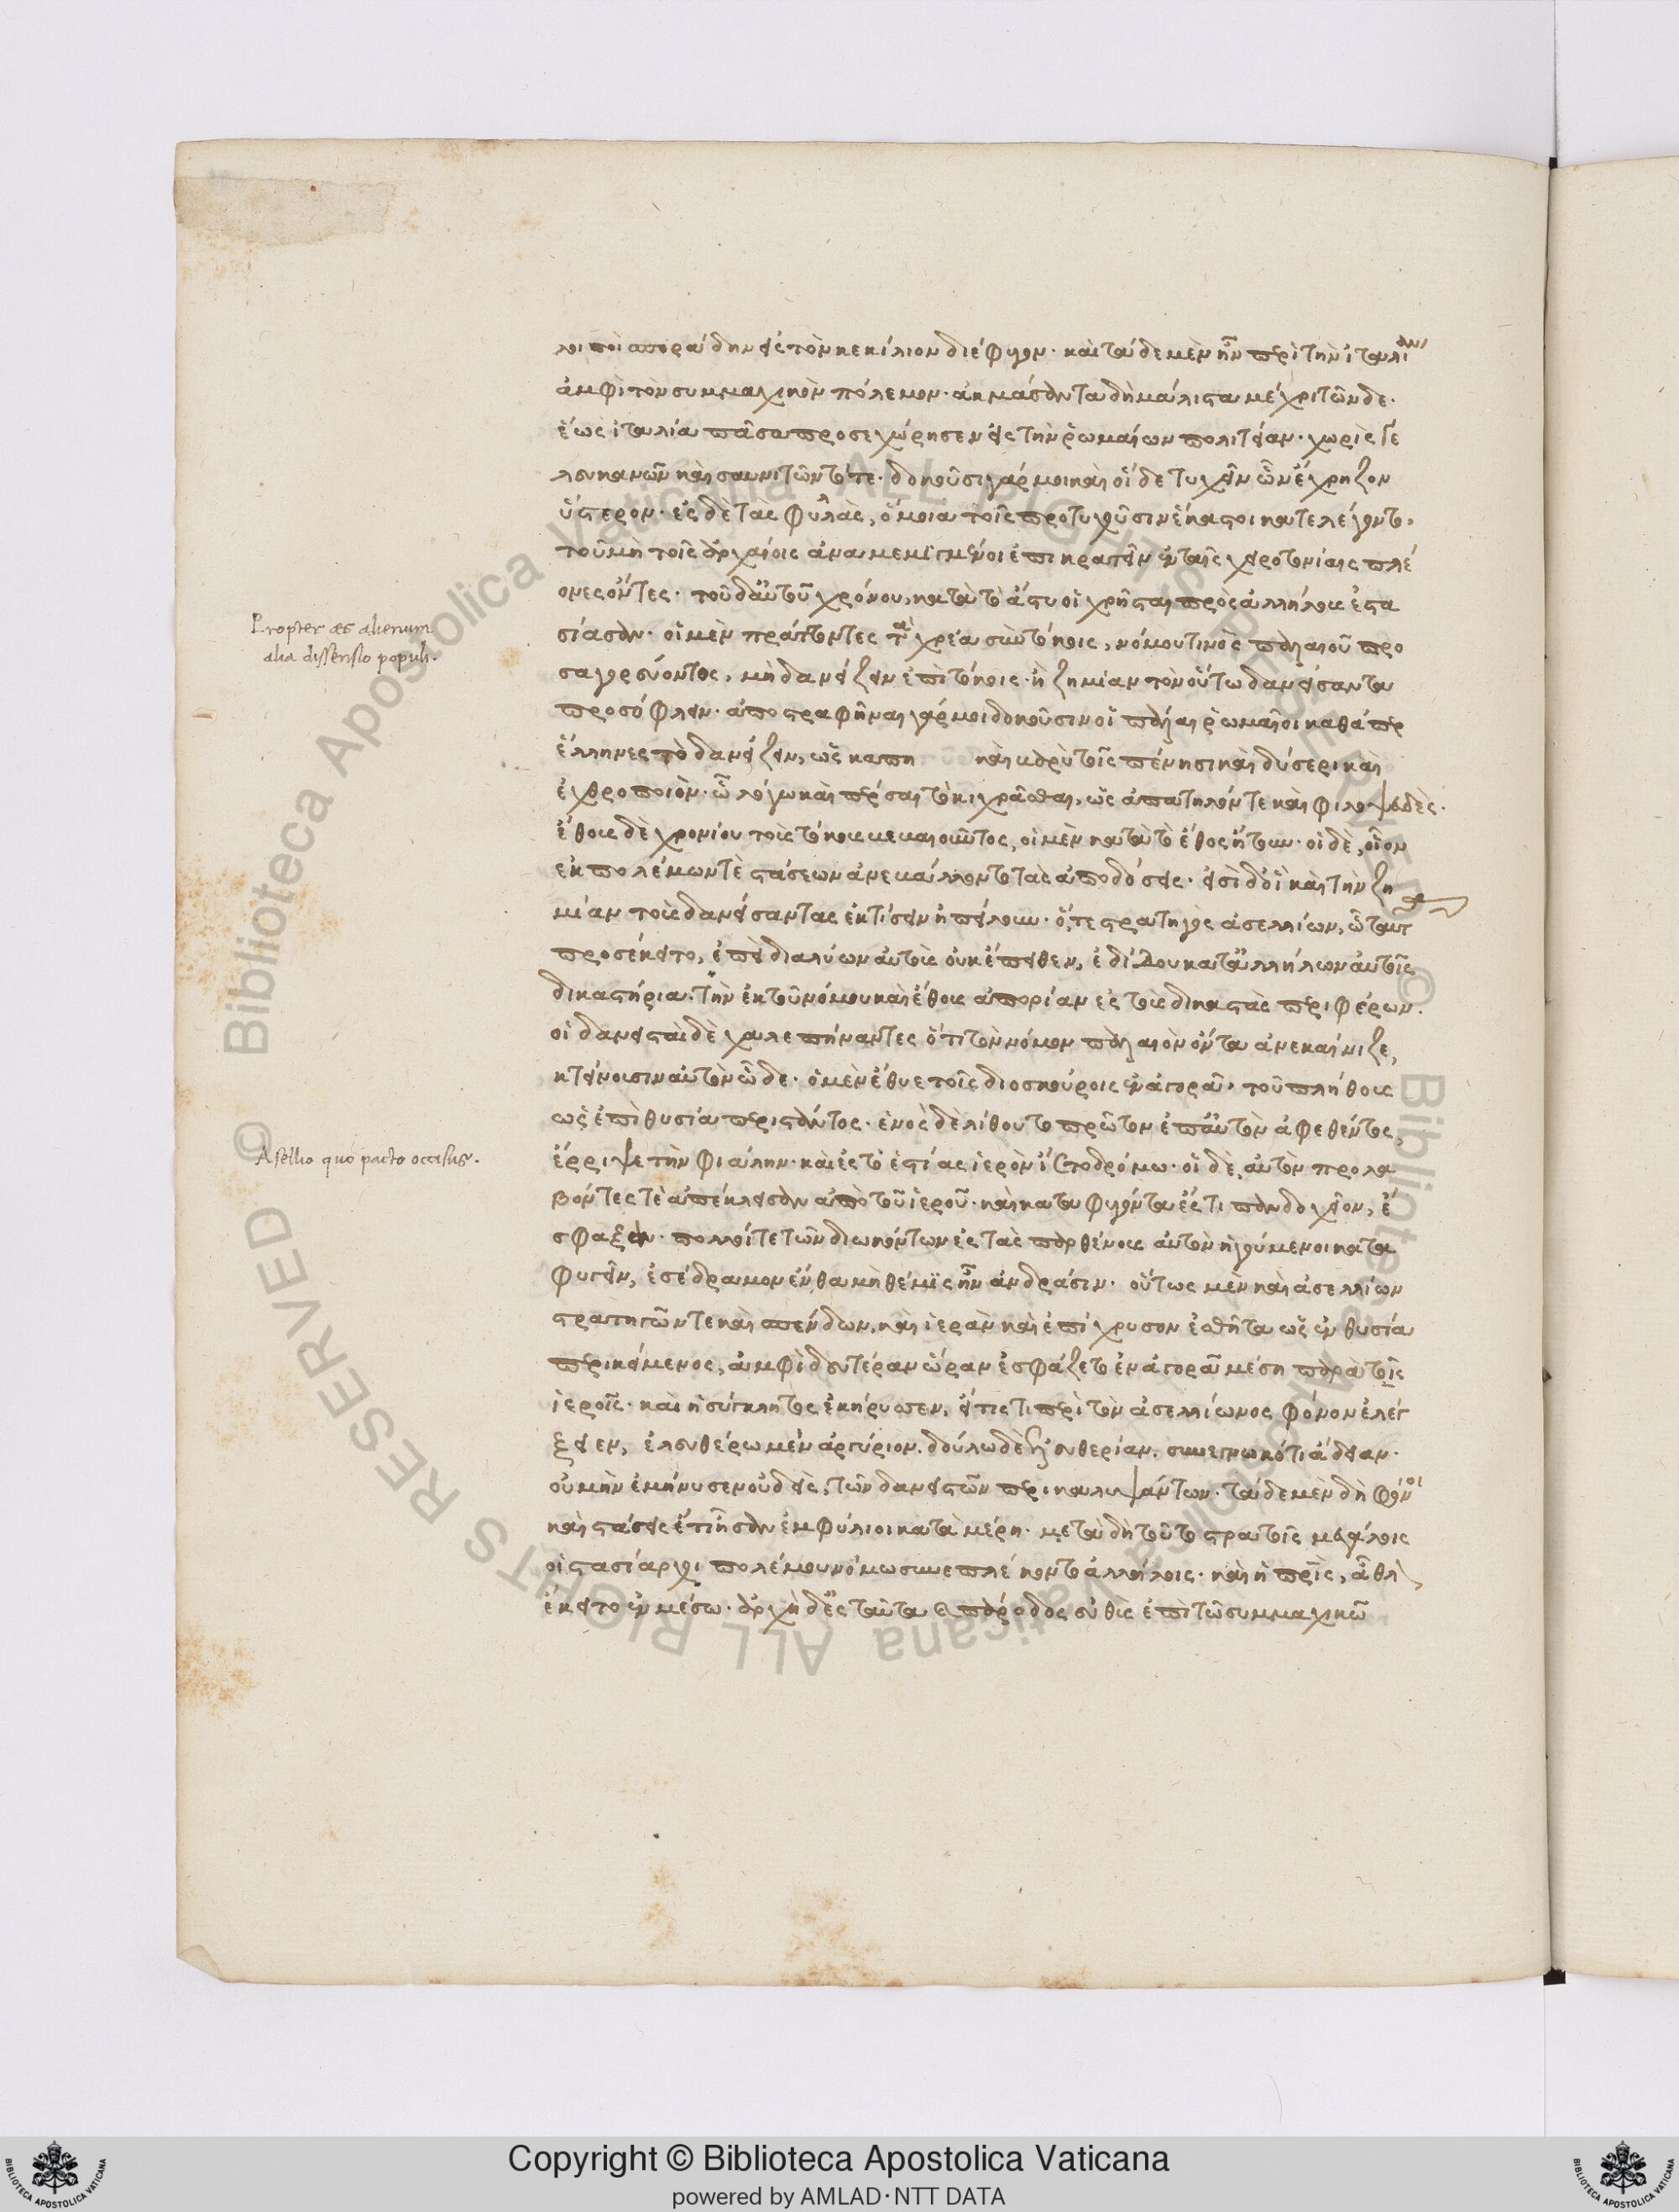 λοιποὶ σποράδην ἐς τὸν κεκίλιον διέφυγον· καὶ τάδε μὲν ἦν περὶ τὴν ἰταλίαν
ἀμφὶ τὸν συμμαχικὸν πόλεμον· ἀκμάσαντα δὴ μάλιστα μέχρι τῶνδε·
ἕως ἰταλία πᾶσα προσεχώρησεν ἐς τὴν ῥωμαίων πολιτείαν· χωρίς γε
λευκανῶν καὶ σαυνιτῶν τότε· δοκοῦσι γάρ μοι καὶ οἵδε τυχεῖν ὧν ἔχρηζον
ὕστερον· ἐς δὲ τὰς φυλὰς, ὅμοια τοῖς προτυχοῦσιν ἕκαστοι κατελέγοντο,
τοῦ μὴ τοῖς ἀρχαίοις ἀναμεμιγμένοι ἐπικρατεῖν ἐν ταῖς χειροτονίαις πλέ
ονες ὄντες· τοῦ δ' αὐτοῦ χρόνου, κατὰ τὸ ἄστυ οἱ χρῆσται πρὸς ἀλλήλους ἐστα
Propter æs alienum
alia dissensio populi.
σίασαν· οἱ μὲν πράττοντες τὰ χρέα σὺν τόκοις, νόμου τινὸς παλαιοῦ προ
σαγορεύοντος, μὴ δανείζειν ἐπὶ τόκοις· ἢ ζημίαν τὸν οὕτω δανείσαντα
προσόφλειν· ἀποστραφῆναι γάρ μοι δοκοῦσιν οἱ πάλαι ῥωμαῖοι καθάπερ
ἕλληνες τὸ δανείζειν, ὡς καπη καὶ βαρὺ τοῖς πένησι καὶ δύσερι καὶ
ἐχθροποιόν· ᾧ λόγω καὶ πέρσαι τὸ κίχρασθαι, ὡς ἀπατηλόν τε καὶ φιλοψευδές·
ἔθους δὲ χρονίου τοὺς τόκους βεβαιοῦντος, οἱ μὲν κατὰ τὸ ἔθος ᾔτουν· οἱ δὲ, οἷον
ἐκ πολέμων τὲ στάσεων ἀνεβάλλοντο τὰς ἀποδόσεις· εἰσὶ δ' οἳ καὶ τὴν ζη
μίαν τοὺς δανείσαντας ἐκτίσειν ἠπείλουν· ὅ, τε στρατηγὸς ἀσελλίων, ᾧ ταῦτα
προσέκειτο, ἐπεὶ διαλύων αὐτοὺς οὐκ ἔπειθεν, ἐδίδου κατ' ἀλλήλων αὐτοῖς
δικαστήρια· τὴν ἐκ τοῦ νόμου καὶ ἔθους ἀπορίαν ἐς τοὺς δικαστὰς περιφέρων.
οἱ δανεισταὶ δὲ χαλεπήναντες ὅτι τὸν νόμον παλαιὸν ὄντα ἀνεκαίνιζε,
κτείνουσιν αὐτὸν ὧδε· ὁ μὲν ἔθυε τοῖς διοσκούροις ἐν ἀγορᾶ· τοῦ πλήθους
ὡς ἐπὶ θυσία περιστάντος· ἑνὸς δὲ λίθου τὸ πρῶτον ἐπ' αὐτὸν ἀφεθέντος,
Asellio quo pacto occisus.
ἔρριψε τὴν φιάλην· καὶ ἐς τὸ ἑστίας ἱερὸν ἵετο δρόμω· οἱ δὲ, αὐτὸν προλα
βόντες τὲ ἀπέκλεισαν ἀπὸ τοῦ ἱεροῦ· καὶ καταφυγόντα ἔς τι πανδοχεῖον, ἔ
σφαξαν· πολλοί τε τῶν διωκόντων ἐς τὰς παρθένους αὐτὸν ἡγούμενοι κατα
φυγεῖν, ἐσέδραμον ἔνθα μὴ θέμις ἦν ἀνδράσιν· οὕτως μὲν καὶ ἀσελλίων
στρατηγῶν τε καὶ σπένδων, καὶ ἱερὰν καὶ ἐπίχρυσον ἐσθῆτα ὡς ἐν θυσία
περικείμενος, ἀμφὶ δευτέραν ὥραν ἐσφάζετο ἐν ἀγορᾶ μέση παρὰ τοῖς
ἱεροῖς· καὶ ἡ σύγκλητος ἐκήρυσσεν, εἴ τίς τι περὶ τὸν ἀσελλίωνος φόνον ἐλέγ
ξειεν, ἐλευθέρω μὲν ἀργύριον, δούλω δὲ ἐλευθερίαν, συνεγνωκότι ἄδειαν·
οὐ μὴν ἐμήνυσεν οὐδεὶς, τῶν δανειστῶν περικαλυψάντων· τάδε μὲν δὴ φόνοι
καὶ στάσεις ἔτι ἦσαν ἐμφύλιοι κατὰ μέρη· μετὰ δὴ τοῦτο στρατοῖς μεγάλοις
οἱ στασίαρχοι πολέμου νόμω συνεπλέκοντο ἀλλήλοις· καὶ ἡ πατρὶς, ἆθλον
ἔκειτο ἐν μέσω· ἀρχὴ δ' ἐς ταῦτα καὶ πάροδος εὐθὺς ἐπὶ τῶ συμμαχικῶ